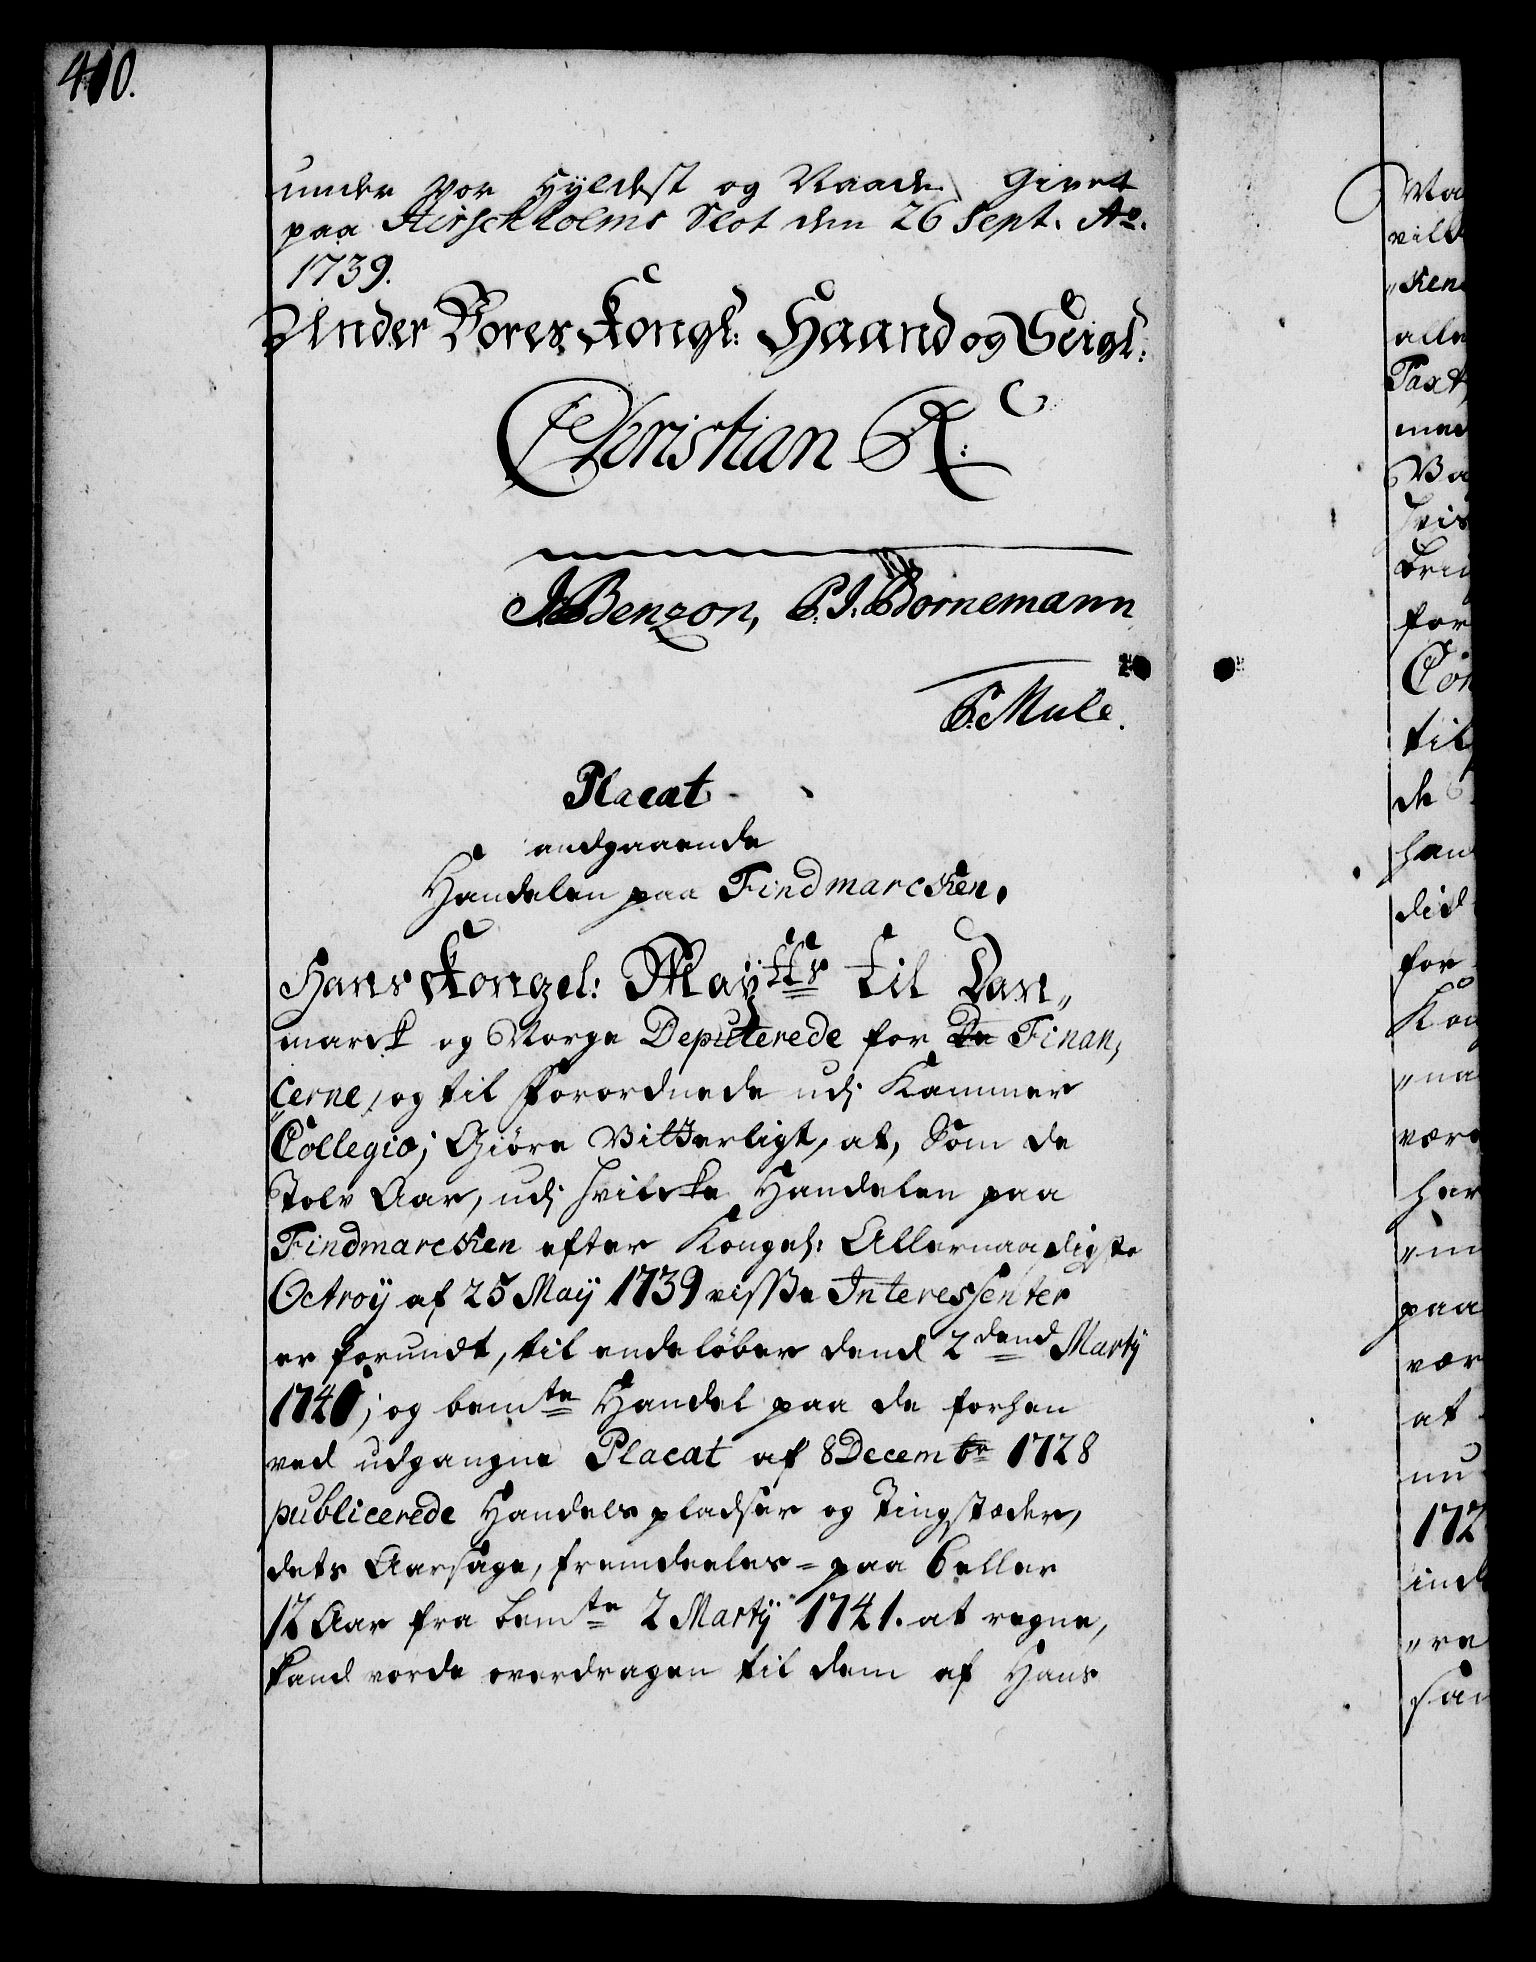 410.
under Vor Hyldest og Naade. Givet
paa Hirschholms Slot den 26 Sept. Ao.
1739.
Under Vores Kongl: Haand og Seigl:
Christian R:
J. Benzon, P. J. Bornemann
P. Mule.
Placat
andgaaende
Handelen paa Findmarcken.
Hans Kongel: Maytts til Dan„
marck og Norge Deputerede for De Finan,
„cerne, og til Forordnede udj Kammer
Collegio; Giöre Vitterligt, at, Som de
Tolv Aar, udj hvilcke Handelen paa
Findmarcken efter Kongel: Allernaadigste
Octroy af 25 May 1739 visse Interessenter
er forundt, til ende löber dend 2dend Marty
1740; og bemte Handel paa de forhen
ved udgangne Placat af 8 Decembr 1728
publicerede Handels pladser og Tingstæder,
dets Aarsage, fremdeeles = paa 6 eller
12 Aar fra bemte 2 Marty 1741. at regne,
kand vorde overdragen til dem af Hans
Na
vil
„ken
alle
Taxt
med
Va
hvis
brin
for
Con
til
de
han
did
for
Kon
„na
være
har
„in
paa
vær
at
nu
172
ind
„re
san